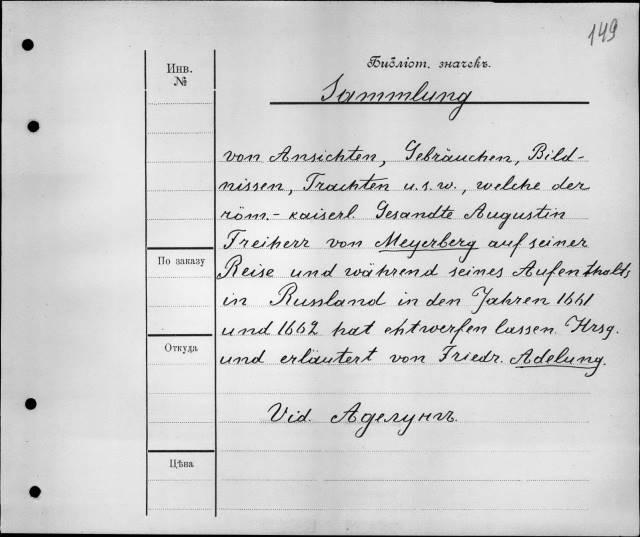 149
Инв.
№
Библіот. значекъ.
Sammlung
von Ansichten, Gebräuchen, Bild-
nissen, Trachten u.s.w., welche der
röm.- kaiserl. Gesandte Augustin
Freiherr von Meyerberg auf seiner
Reise und während seines Aufenthalts
in Russland in den Jahren 1661
und 1662 hat entwerfen lassen. Hrsg.
und erläutert von Friedr. Adelung.
Vid. Аделунгъ.
По заказу
Откуда
Цѣна